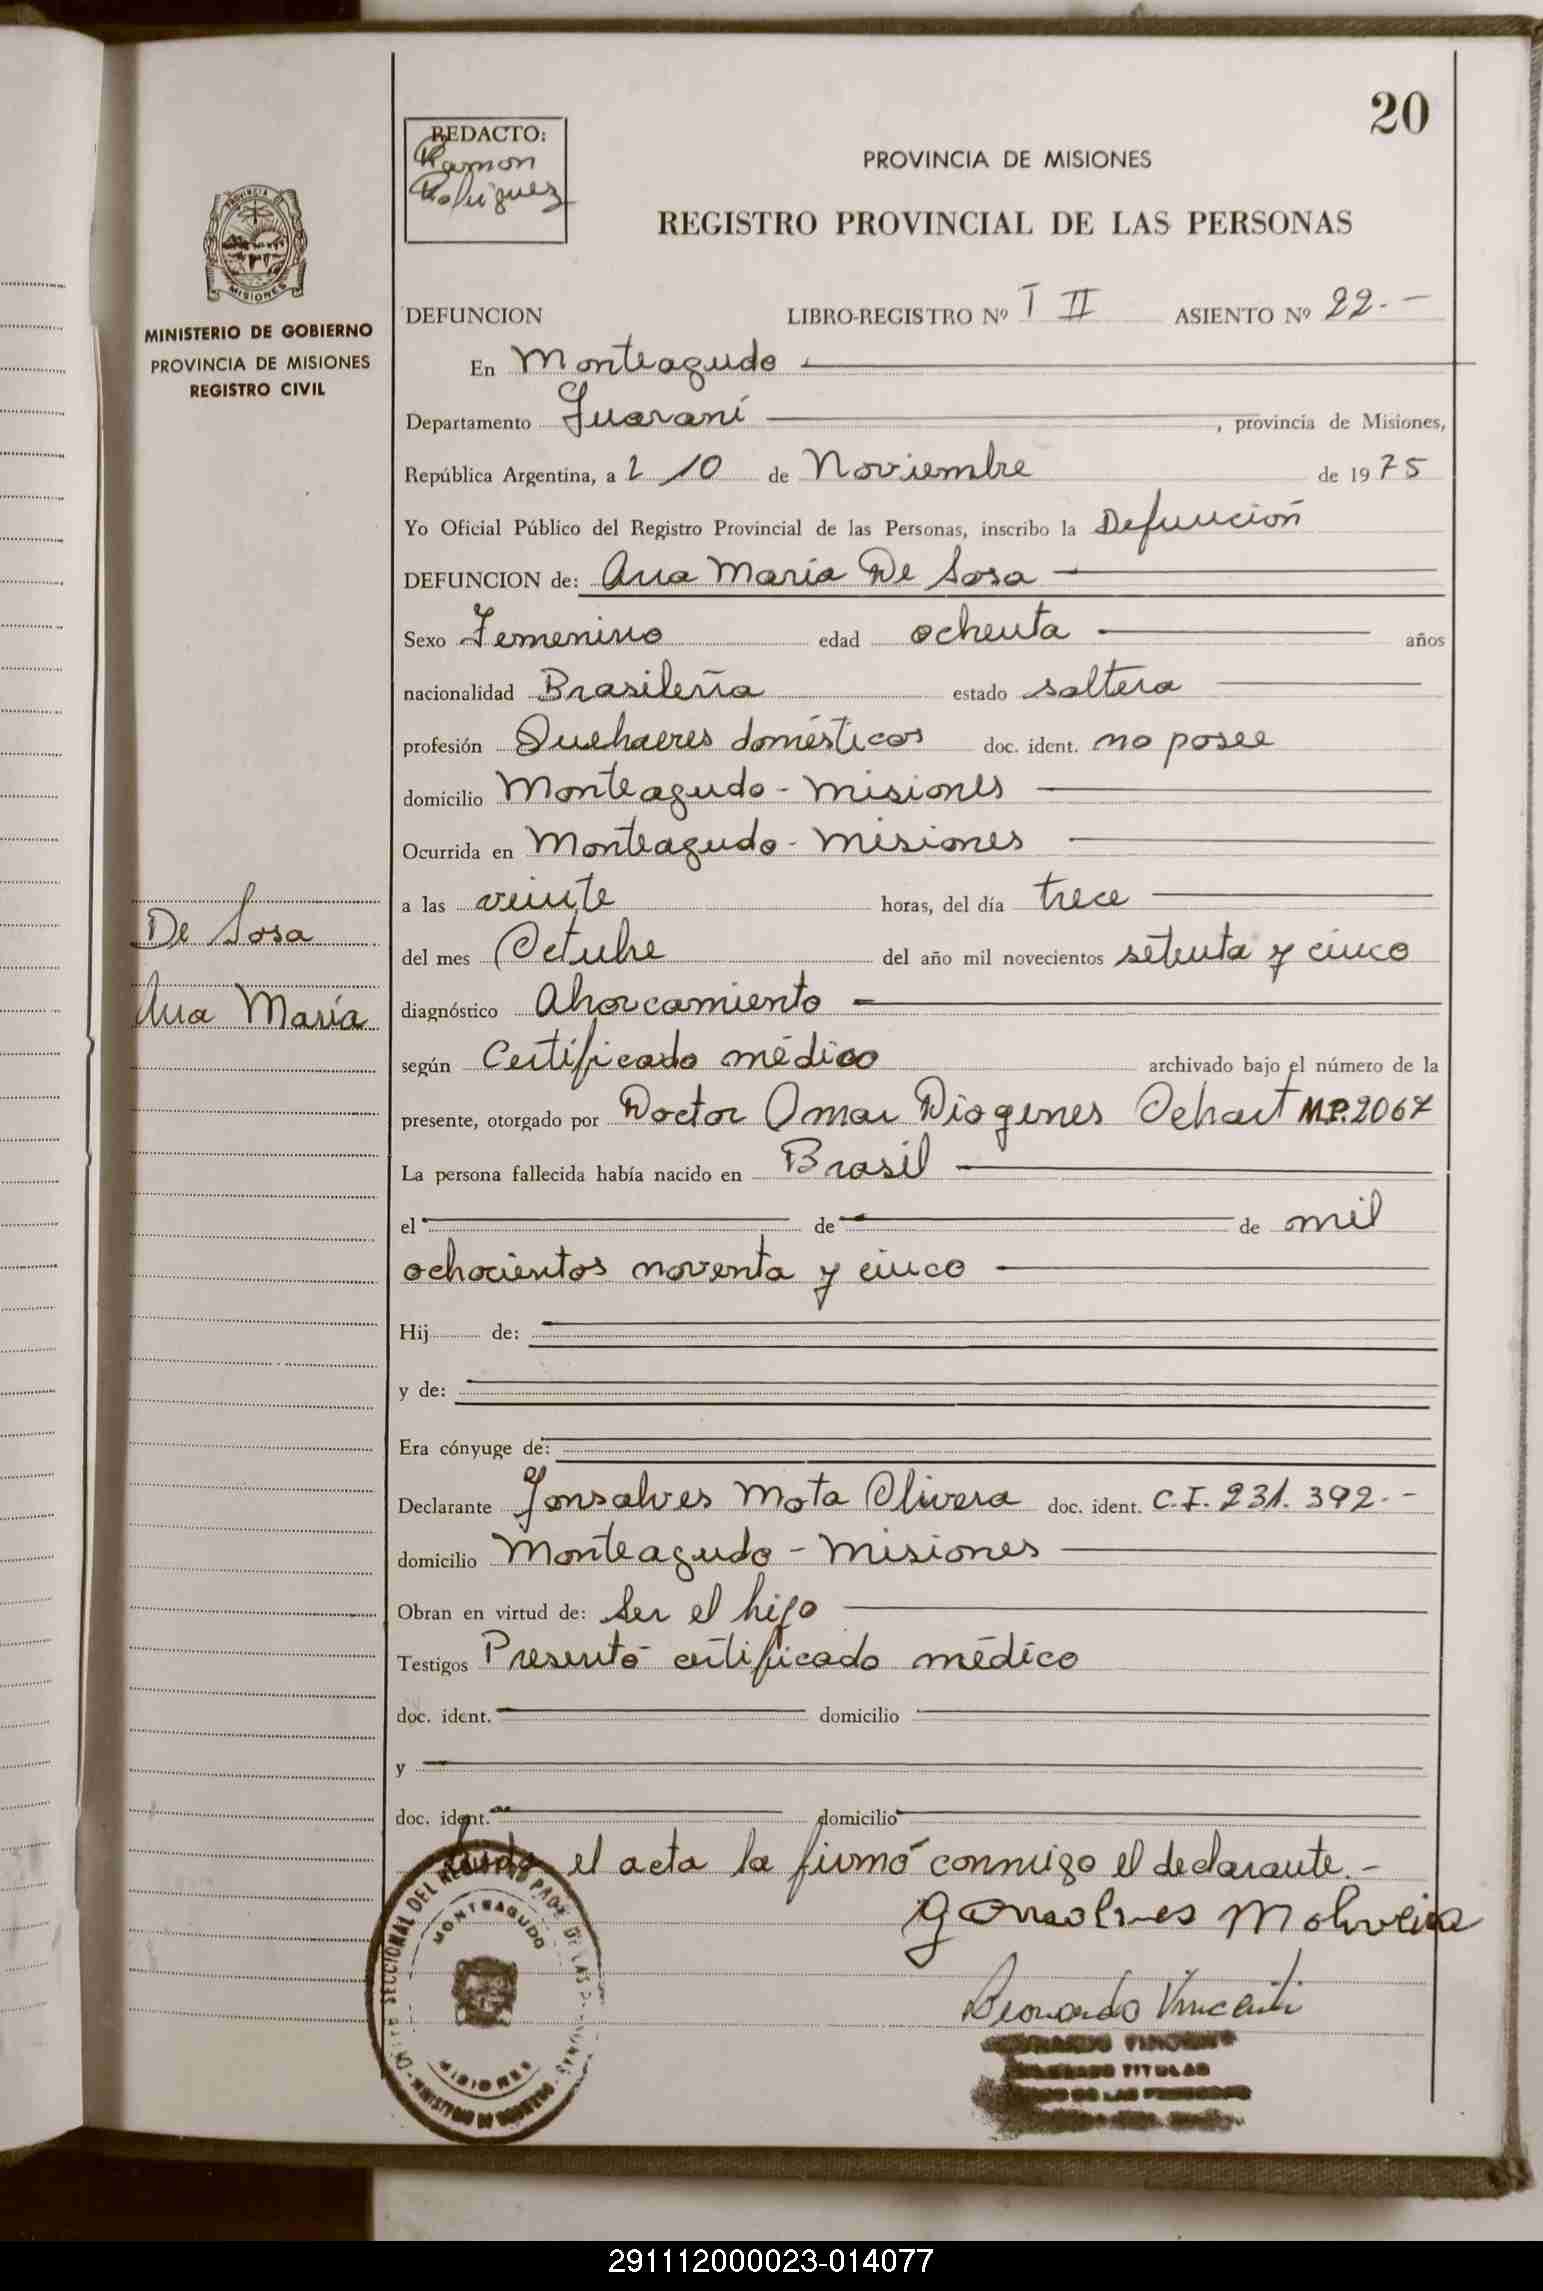 20
REDACTO:
Ramon
Rodriguez
PROVINCIA DE MISIONES
REGISTRO PROVINCIAL DE LAS PERSONAS
MISIONES
MINISTERIO DE GOBIERNO
PROVINCIA DE MISIONES
REGISTRO CIVIL
DEFUNCION LIBRO-REGISTRO Nº T II ASIENTO Nº 22.-
En Monteagudo
Departamento Guaraní, provincia de Misiones,
República Argentina, a 10 de Noviembre de 1975
Yo Oficial Público del Registro Provincial de las Personas, inscribo la Defunción
DEFUNCION de: Ana Maria De Sosa
Sexo Femenino edad ochenta años
nacionalidad Brasileña estado soltera
profesión Quehaeres domésticos doc. ident. no posee
domicilio Monteagudo - Misiones
Ocurrida en Monteagudo - Misiones
a las veinte horas, del día trece
De Sosa
del mes Octubre del año mil novecientos setenta y cinco
Ana María
diagnóstico Ahorcamiento
según Certificado médico archivado bajo el número de la
presente, otorgado por Doctor Omar Diogenes Dehart M.P. 2067
La persona fallecida había nacido en Brasil
el de de mil
ochocientos noventa y cinco
Hij de:
y de:
Era cónyuge de:
Declarante Gonsalves Mota Olivera doc. ident. C.I. 231.392.-
domicilio Monteagudo - Misiones
Obran en virtud de: Ser el hijo
Testigos Presentó certificado médico
doc. ident. domicilio
y
doc. ident. domicilio
Leida el acta la firmó conmigo el declarante.-
Gonsolves M oliveira
Leonardo Vincenti
MONTEAGUDO
MISIONES
TITULAR
291112000023-014077